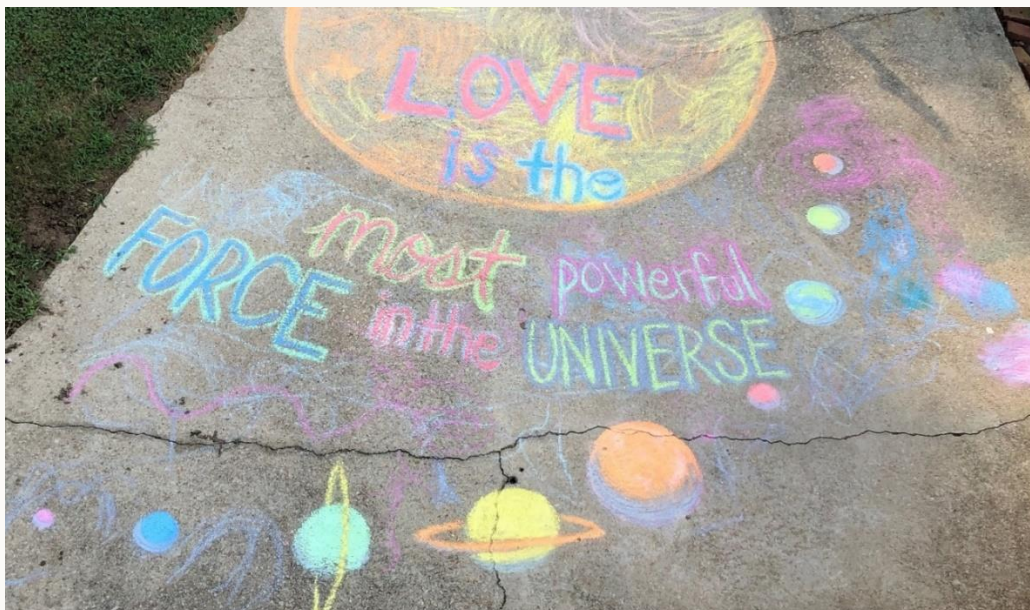 LOVE
is the
most powerful
FORCE in the UNIVERSE